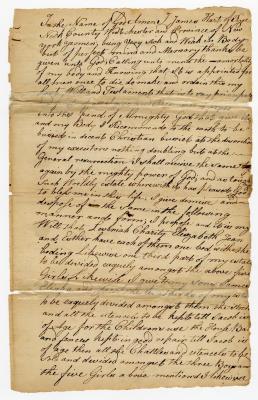 In the Name of God Amen I James Hart of Rye
County of West Chester and Province of New
York yeoman, being Very Sick and Weak In Body
but of perfect mind and Memory thanks be
given unto God Calling unto mind the mortality
of my Body and Knowing that it is appointed for
all men once to die do make and ordain this my
Last Will and Testament that is to say
into the hand of Almighty God that gave it
and my Body I Recommend to the earth to be
buried in decent Christian burial at the discretion
of my executors nothing doubting but at the
General resurrection I shall receive the same
again by the mighty power of God and as touching
Such Worldly estate wherewith it has pleased God
to bless me in this life I give demise and
dispose of the Same in the following
manner and form,
Will that Charity Elizabeth Jean
and Esther have each of them one bed with
beding Likewise one third part of my estate
to be divided equely amongst the above five
Girls Likewise I give my Sons James
to be equely divided amongst them the
and all the utensils to be kept till Jacob is
of age for the Childrens use the
and fences kept in good repair till Jacob is
of age then all the Chattles and utencels to be
Sold and devided amongst the three Boys and
the five Girls above mentioned Likewise